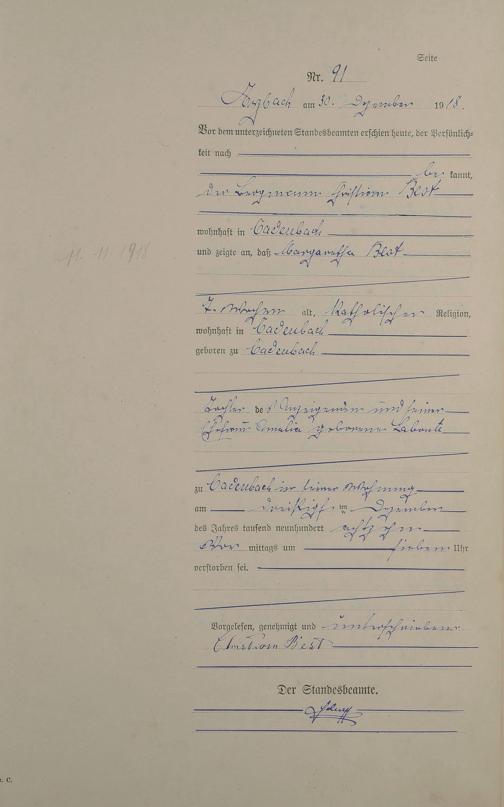 Seite
Nr. 91
Arzbach am 30. Dezember 1918.
Vor dem unterzeichneten Standesbeamten erschien heute, der Persönlich-
keit nach
be kannt,
der Bergmann Christian Best
wohnhaft in Cadenbach
und zeigte an, daß Margaretha Best
11. 11. 1918
7 Wochen alt, katholischer Religion,
wohnhaft in Cadenbach
geboren zu Cadenbach
Tochter des Anzeigenden und seiner
Ehefrau Amalia geborene Labonte
zu Cadenbach in seiner Wohnung
am dreißigsten Dezember
des Jahres tausend neunhundert achtzehn
Vor mittags um sieben Uhr
verstorben sei.
Vorgelesen, genehmigt und unterschrieben
Christian Best
Der Standesbeamte.